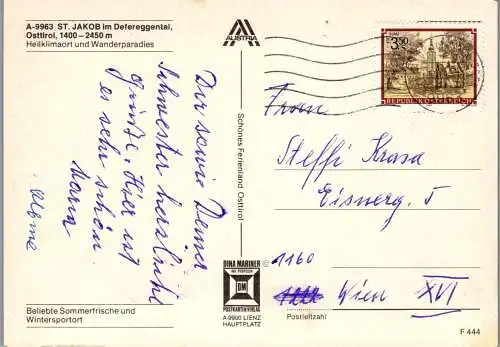 A-9963 ST. JAKOB im Defereggental,
Osttirol, 1400–2450 m
Heilklimaort und Wanderparadies
Dir sowie Deiner
Schwester herzliche
Grüße. Hier ist
es sehr schön
Maria
Beliebte Sommerfrische und
Wintersportort
AUSTRIA
Schönes Ferienland Osttirol
DINA MARINER
DM
POSTKARTENVERLAG
A-9900 LIENZ
HAUPTPLATZ
3.50
REPUBLIK ÖSTERREICH
Frau
Steffi Krasa
1160
Wien XVI
Postleitzahl
F 444